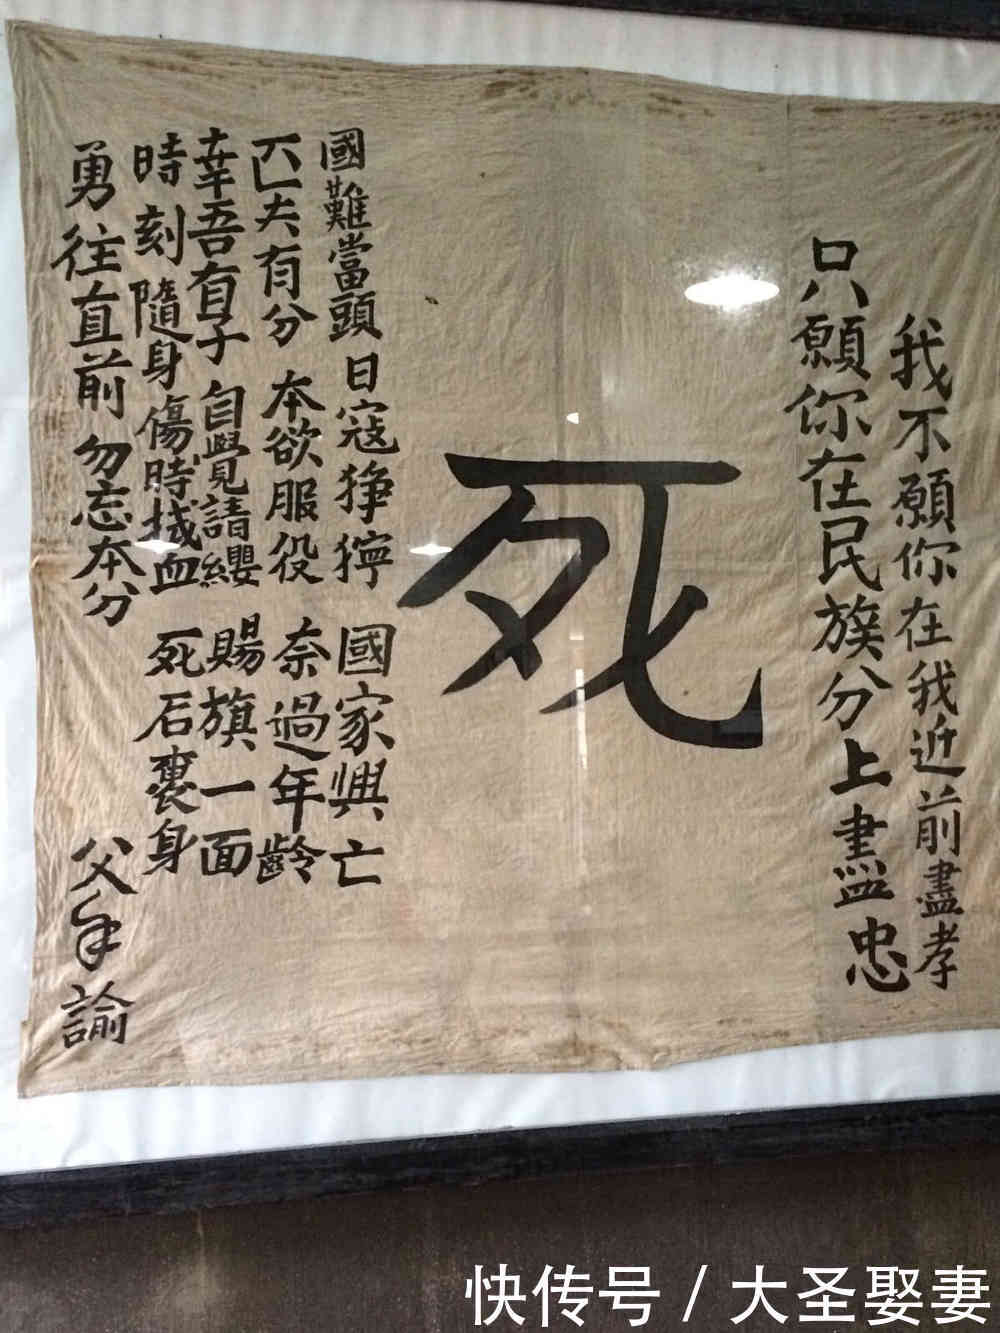 我不願你在我近前盡孝
只願你在民族分上盡忠
死
國難當頭 日寇猙獰 國家興亡
匹夫有分 本欲服役 奈過年齡
幸吾有子 自覺請纓 賜旗一面
時刻隨身 傷時拭血 死后裹身
勇往直前 勿忘本分
父手諭
快传号 / 大圣娶妻